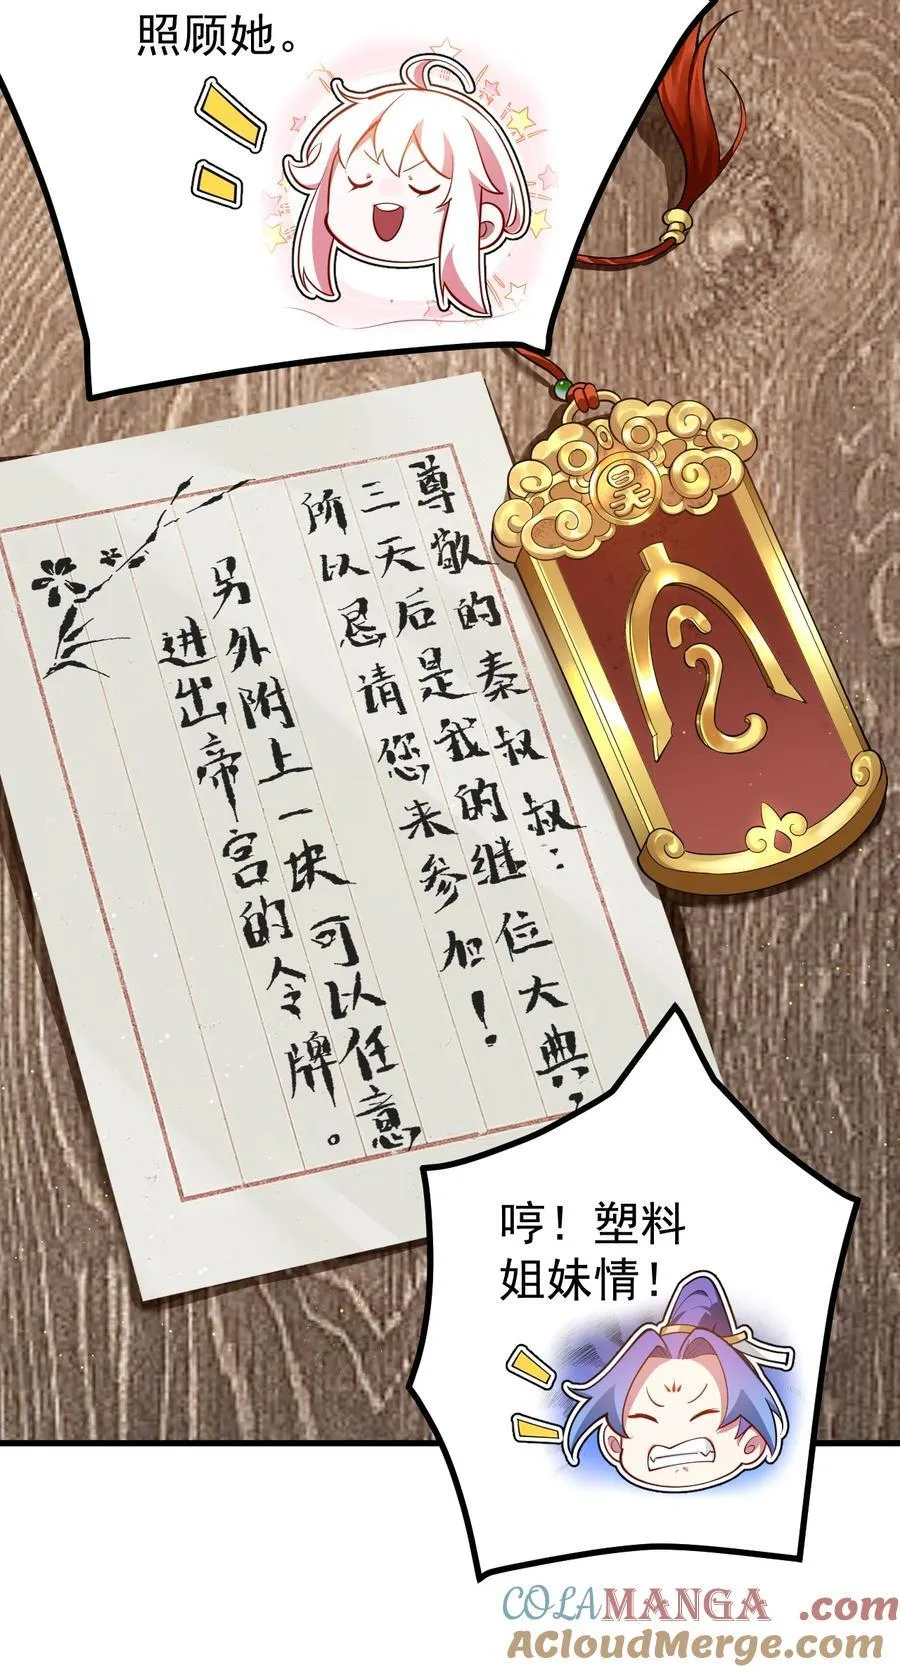 照顾她。
昊
令
尊敬的秦叔叔：
三天后是我的继位大典，
所以恳请您来参加！
另外附上一块可以任意
进出帝宫的令牌。
哼！塑料
姐妹情！
COLAMANGA.com
ACloudMerge.com